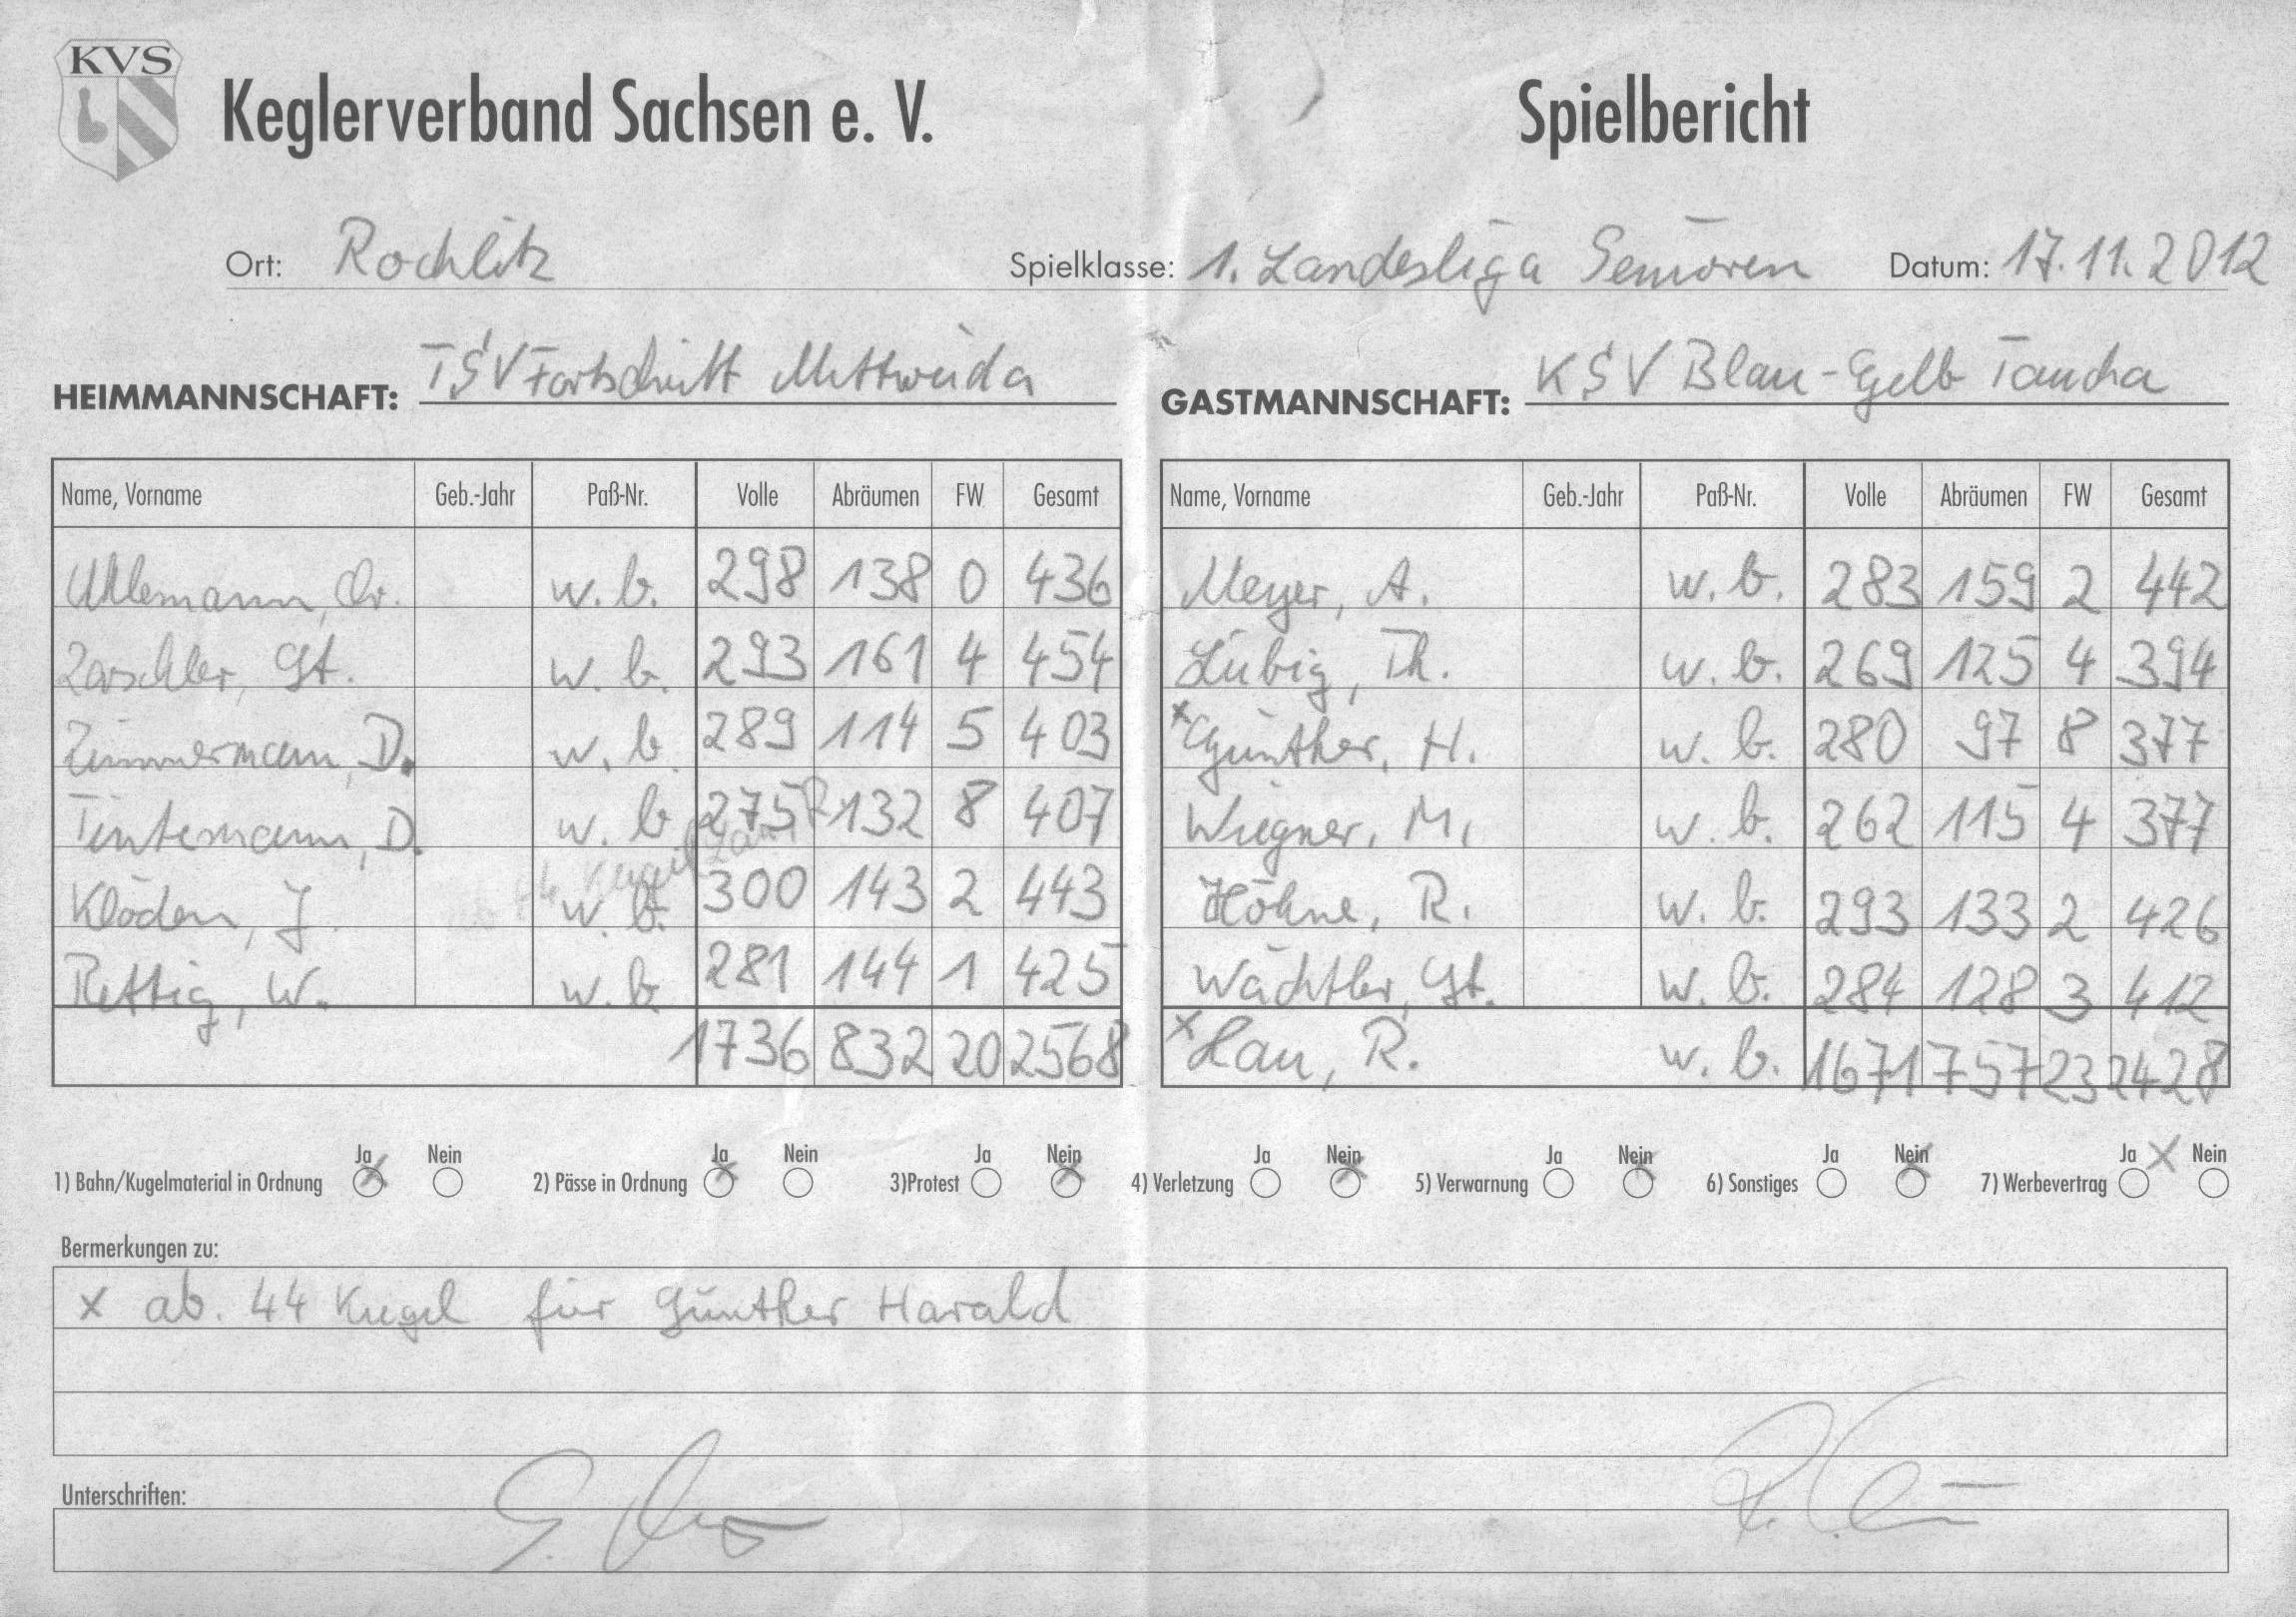 KVS
Keglerverband Sachsen e. V.
Spielbericht
Ort: Rochlitz Spielklasse: 1. Landesliga Senioren Datum: 17.11.2012
HEIMMANNSCHAFT: TSV Fortschritt Mittweida
GASTMANNSCHAFT: KSV Blau-Gelb Taucha
Name, Vorname Geb.-Jahr Paß-Nr. Volle Abräumen FW Gesamt
Uhlemann, w. b. 298 138 0 436
St. w. b. 293 161 4 454
Zimmermann, D. w. b. 289 114 5 403
Tintemann, D. w. b 275 132 8 407
Klöden, J. w. b. 300 143 2 443
Rettig, W. w. b. 281 144 1 425
1736 832 20 2568
Name, Vorname Geb.-Jahr Paß-Nr. Volle Abräumen FW Gesamt
Meyer, A. w. b. 283 159 2 442
Lubig, Th. w. b. 269 125 4 394
x Günther, H. w. b. 280 97 8 377
Wiegner, M. w. b. 262 115 4 377
Höhne, R. w. b. 293 133 2 426
Wächtler, St. w. b. 284 128 3 412
x Lau, R. w. b. 1671 757 23 2428
1) Bahn/Kugelmaterial in Ordnung Ja Nein 2) Pässe in Ordnung Ja Nein 3)Protest Ja Nein 4) Verletzung Ja Nein 5) Verwarnung Ja Nein 6) Sonstiges Ja Nein 7) Werbevertrag Ja Nein
Bermerkungen zu:
x ab. 44 Kugel für Günther Harald
Unterschriften: